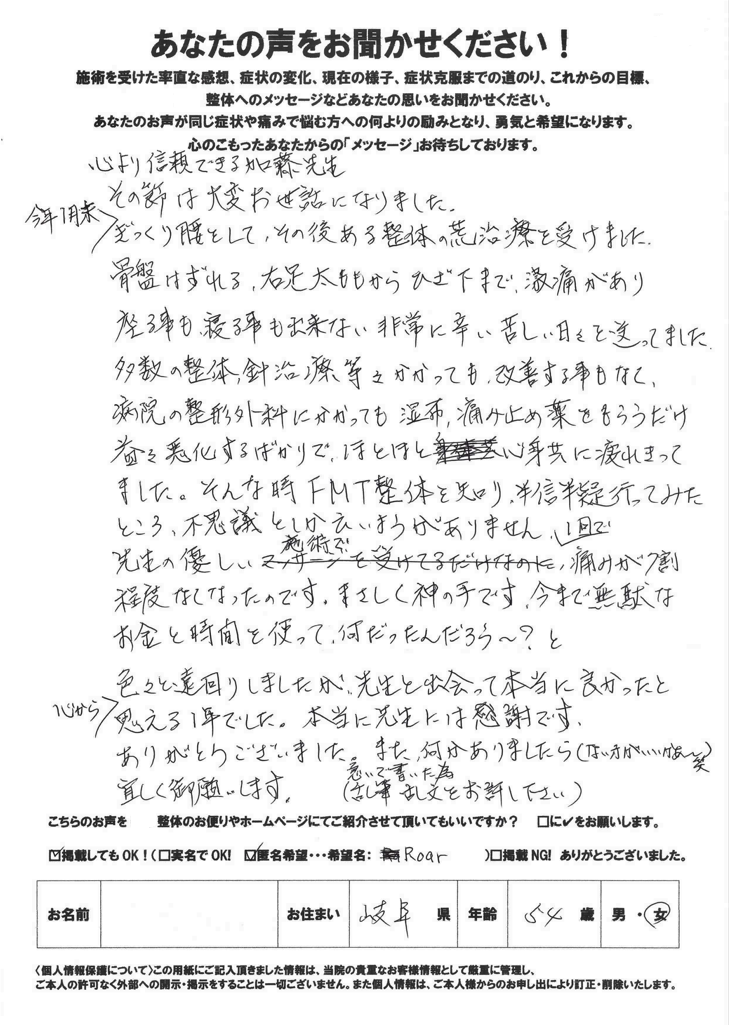 あなたの声をお聞かせください！
施術を受けた率直な感想、症状の変化、現在の様子、症状克服までの道のり、これからの目標、
整体へのメッセージなどあなたの思いをお聞かせください。
あなたのお声が同じ症状や痛みで悩む方への何よりの励みとなり、勇気と希望になります。
心のこもったあなたからの「メッセージ」お待ちしております。
心より信頼できる加藤先生
その節は大変お世話になりました。
今年1月末
ぎっくり腰をして、その後ある整体の荒治療を受けました。
骨盤はずれる、右足太ももからひざ下まで、激痛があり
座る事も、寝る事も出来ない非常に辛い苦しい日々を送ってました。
多数の整体、針治療等々かかっても、改善する事もなく、
病院の整形外科にかかっても湿布、痛み止め薬をもらうだけ
益々悪化するばかりで、ほとほと心身共に疲れきって
ました。そんな時FMT整体を知り、半信半疑行ってみた
ところ、不思議としか云いようがありません。1回で
施術で
先生の優しいマッサージを受けてるだけなのに、痛みが7割
程度なくなったのです。まさしく神の手です。今まで無駄な
お金と時間を使って、何だったんだろう〜？と
色々と遠回りしましたが、先生と出会って本当に良かったと
心から
思える1年でした。本当に先生には感謝です。
ありがとうございました。また、何かありましたら(ない方がいいけどね〜)笑
宜しく御願いします。
急いで書いた為
(乱筆乱文をお許し下さい)
こちらのお声を 整体のお便りやホームページにてご紹介させて頂いてもいいですか？ □に✔をお願いします。
☑掲載してもOK！(□実名でOK! ☑匿名希望･･･希望名： Roar )□掲載NG! ありがとうございました。
お名前 お住まい 岐阜 県 年齢 54 歳 男・女
〈個人情報保護について〉この用紙にご記入頂きました情報は、当院の貴重なお客様情報として厳重に管理し、
ご本人の許可なく外部への開示・掲示をすることは一切ございません。また個人情報は、ご本人様からのお申し出により訂正・削除いたします。